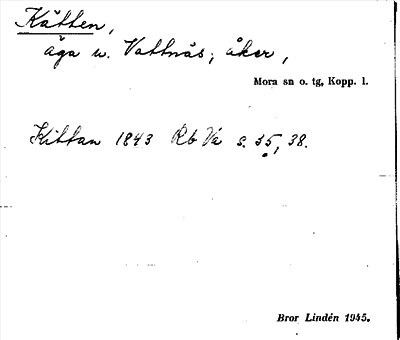 Kätten,
äga u. Vattnäs; åker,
Mora sn o. tg, Kopp. l.
Kittan 1843 Rb Va s. 35, 38.
Bror Lindén 1945.